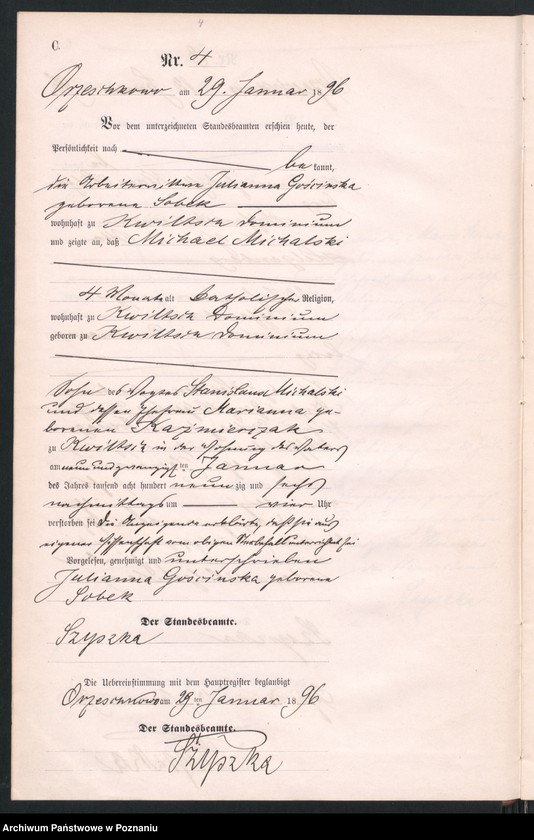 C.
Nr. 4
Orzeschkowo am 29. Januar 1896
Vor dem unterzeichneten Standesbeamten erschien heute, der
Persönlichkeit nach
be kannt,
die Arbeiterwittwe Julianna Gościnska
geborene Sobek
wohnhaft zu Kwiltsch Dominium
und zeigte an, daß Michael Michalski
4 Monate alt katholischer Religion,
wohnhaft zu Kwiltsch Dominium
geboren zu Kwiltsch Dominium
Sohn des Vogtes Stanislaus Michalski
und dessen Ehefrau Marianna ge-
borenen Kazmierczak
zu Kwiltsch in der Wohnung des Vaters
am neunundzwanzigsten Januar
des Jahres tausend acht hundert neun zig und sechs
nachmittags um vier Uhr
verstorben sei. Die Anzeigende erklärte, daß sie aus
eigener Wissenschaft vom obigen Sterbefall unterrichtet sei
Vorgelesen, genehmigt und unterschrieben
Julianna Gościnska geborene
Sobek
Der Standesbeamte.
Szyszka
Die Uebereinstimmung mit dem Hauptregister beglaubigt
Orzeschkowo am 29 ten Januar 1896
Der Standesbeamte.
Szyszka
Archiwum Państwowe w Poznaniu